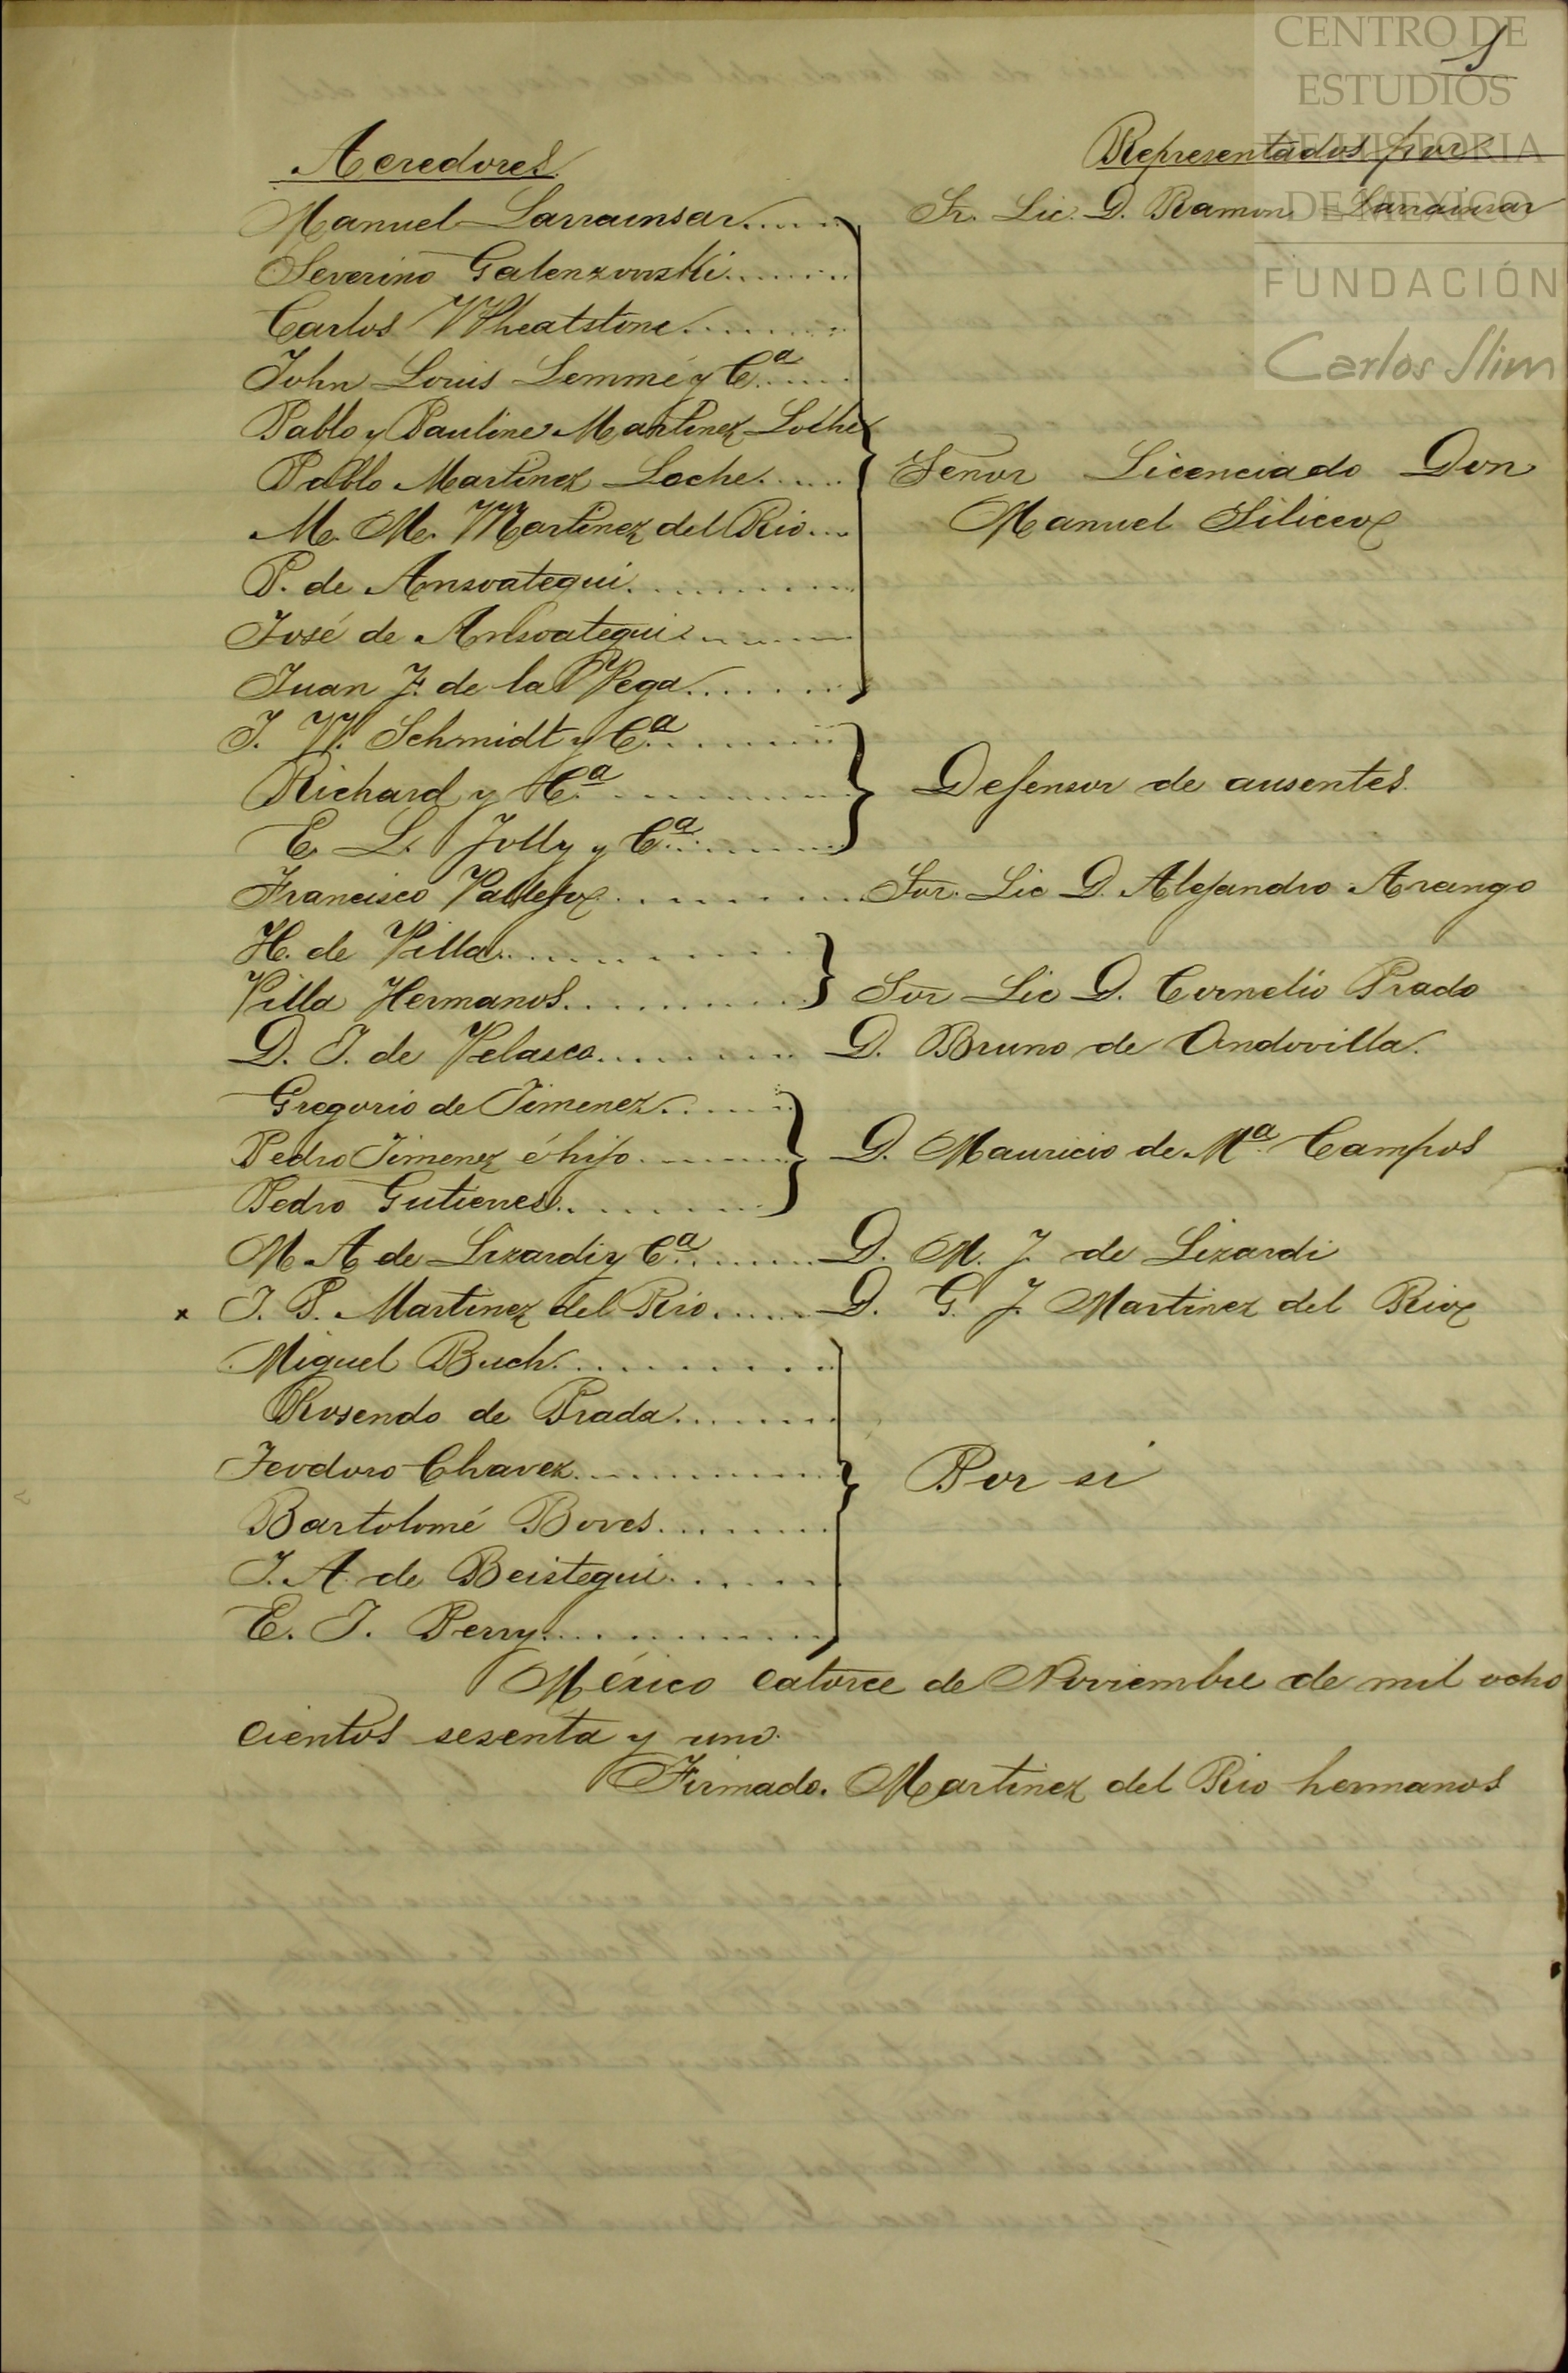 CENTRO DE
ESTUDIOS
DE HISTORIA
DE MEXICO
FUNDACIÓN
Carlos Slim
Acredores Representados por
Manuel Larrainsar..... Sr. Lic. D. Ramon Larrainsar
Severino Galenzowski.......
Carlos Wheatstone........
John Louis Lemmé y Cª.....
Pablo y Pauline Martinez Loche
Pablo Martinez Loche..... Señor Licenciado Don
M. M. Martinez del Rio... Manuel Siliceo
P. de Ansoategui..........
José de Ansoategui.......
Juan J. de la Vega........
J. W. Schmidt y Cª........
Richard y Cª.......... Defensor de ausentes.
E. L. Jolly y Cª.........
Francisco Vallejo.......... Sor. Lic D. Alejandro Arango
H. de Villa..........
Villa Hermanos.......... Sor Lic D. Cornelio Prado
D. J. de Velasco........ D. Bruno de Ondovilla.
Gregorio de Jimenez......
Pedro Jimenez é hijo....... D. Mauricio de Mª. Campos
Pedro Gutierres........
M A de Lizardi y Cª....... D. M. J. de Lizardi
x J. P. Martinez del Rio...... D. G. J. Martinez del Rio
Miguel Buch..........
Rosendo de Prada.......
Teodoro Chavez.......... Por si
Bartolomé Boves........
J. A. de Beistegui......
E. J. Perry...........
México catorce de Noviembre de mil ocho
cientos sesenta y uno.
Firmado. Martinez del Rio hermanos